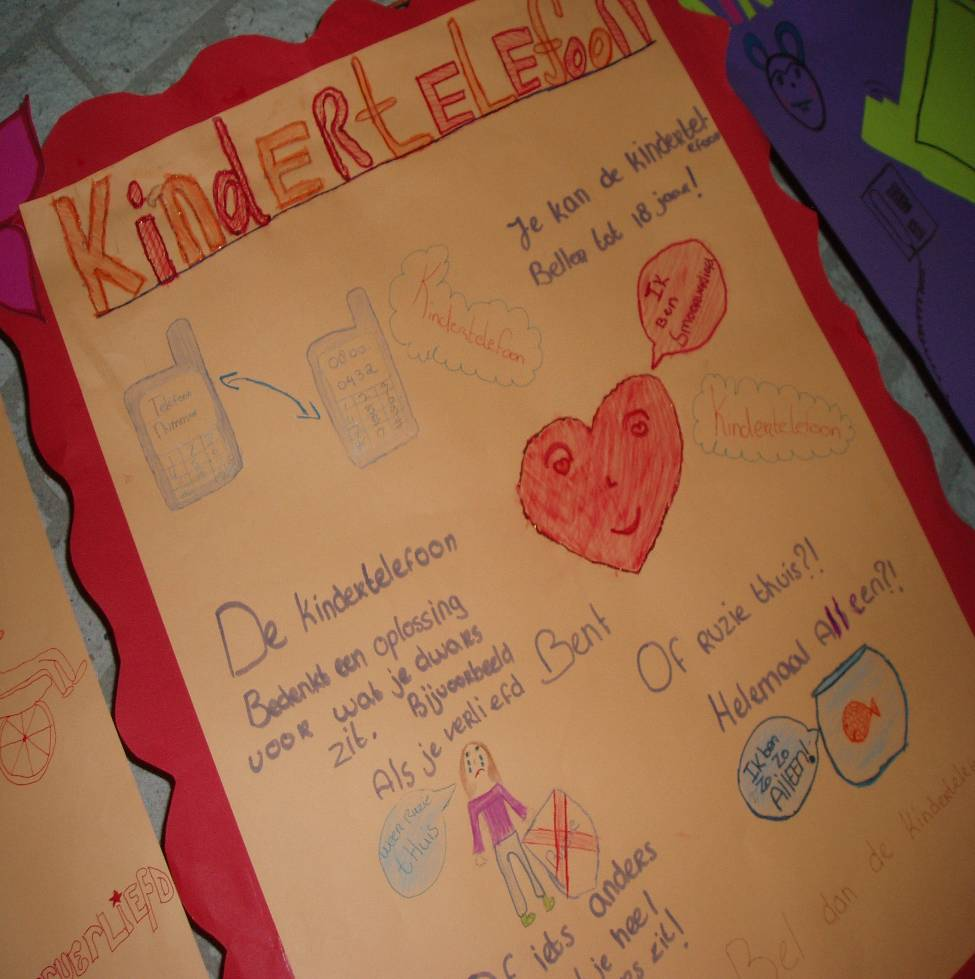 KindERtELEfoon
Je kan de kindertel-
efoon
Bellen tot 18 jaar!
Ik
Ben
Smoorverliefd
Kindertelefoon
0800
0432
Telefoon
Nummer
Kindertelefoon
De kindertelefoon
Bedenkt een oplossing
voor wat je dwars
zit. Bijvoorbeeld
Als je verliefd Bent
Of Ruzie thuis?!
Helemaal Alleen?!
Ik ben
zo zo
Alleen!
weer Ruzie
t Huis
Of iets anders
je hee!
zit!
Bel dan de kindertele
VERLiEfD